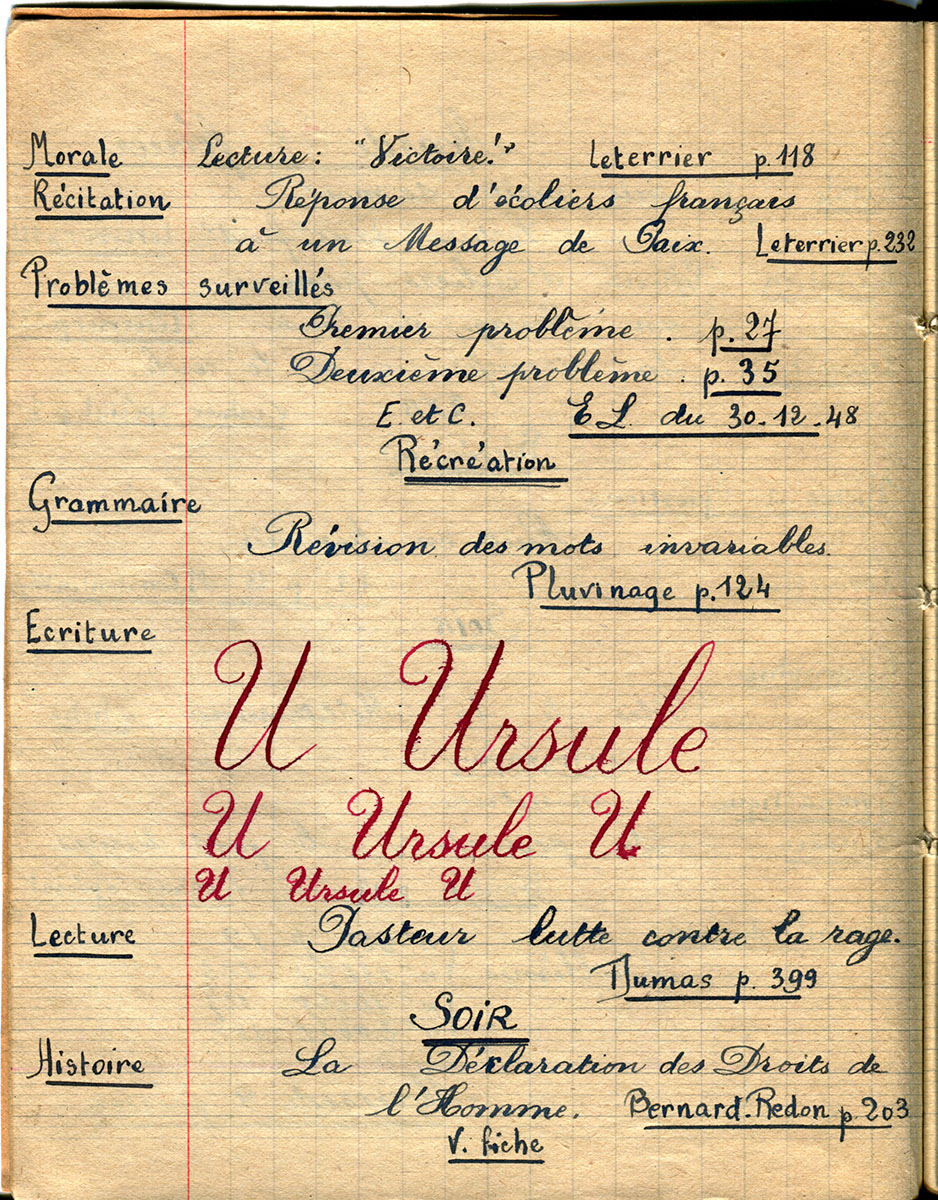 Morale Lecture : "Victoire!" Leterrier p.118
Récitation Réponse d'écoliers français
à un Message de Paix. Leterrier p.232
Problèmes surveillés
Premier problème. p.27
Deuxième problème. p.35
E. et C. E L. du 30-12-48
Récréation
Grammaire
Révision des mots invariables.
Pluvinage p.124
Ecriture
U Ursule
U Ursule U
U Ursule U
Lecture Pasteur lutte contre la rage.
Dumas p. 399
SOIR
Histoire La Déclaration des Droits de
l'Homme. Bernard-Redon p.203
V. fiche